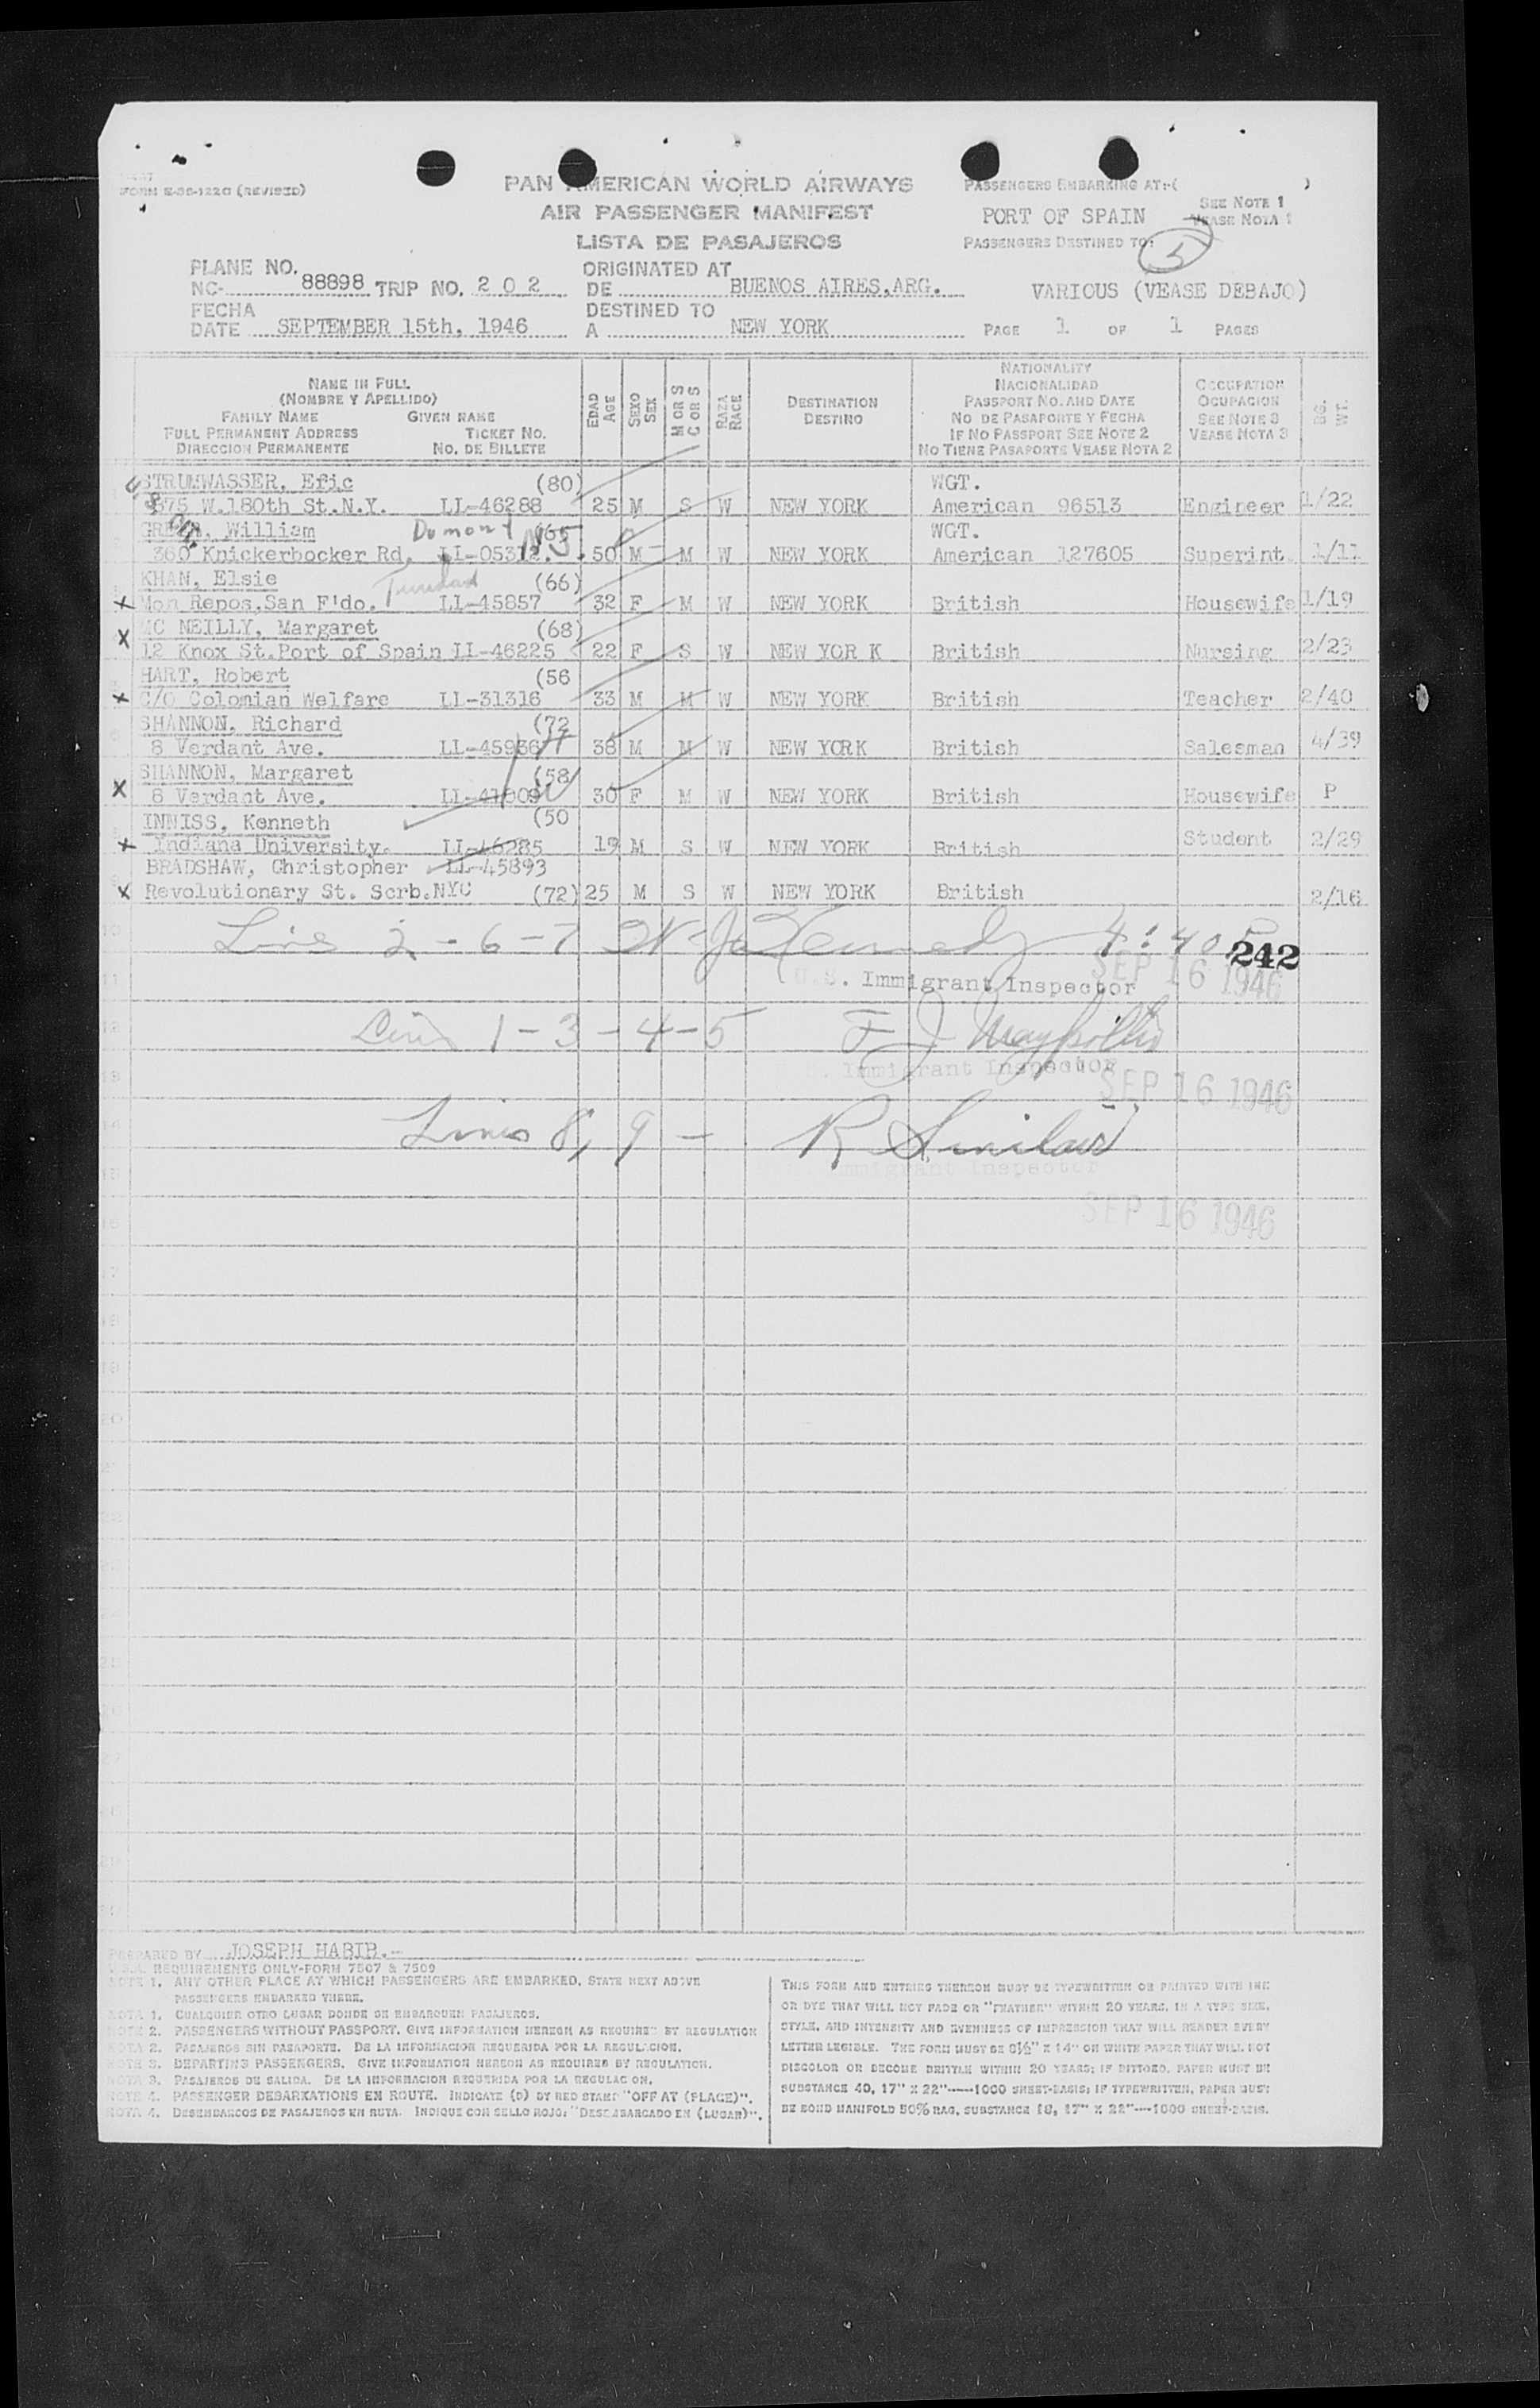 FORM E-SS-122C (REVISED)
PAN AMERICAN WORLD AIRWAYS
AIR PASSENGER MANIFEST
LISTA DE PASAJEROS
PASSENGERS EMBARKING AT:-( )
PORT OF SPAIN
SEE NOTE 1
VEASE NOTA 1
PASSENGERS DESTINED TO:
5
VARIOUS (VEASE DEBAJO)
PLANE NO.
NC- 88898 TRIP NO. 2 0 2
FECHA
DATE SEPTEMBER 15th, 1946
ORIGINATED AT
DE BUENOS AIRES,ARG.
DESTINED TO
A NEW YORK
PAGE 1 OF 1 PAGES
NAME IN FULL
(NOMBRE Y APELLIDO)
FAMILY NAME GIVEN NAME
FULL PERMANENT ADDRESS TICKET NO.
DIRECCION PERMANENTE NO. DE BILLETE
EDAD AGE
SEXO SEX
M OR S C OR S
RAZA RACE
DESTINATION
DESTINO
NATIONALITY
NACIONALIDAD
PASSPORT NO. AND DATE
NO DE PASAPORTE Y FECHA
IF NO PASSPORT SEE NOTE 2
NO TIENE PASAPORTE VEASE NOTA 2
OCCUPATION
OCUPACION
SEE NOTE 3
VEASE NOTA 3
BG. WT.
STRUMWASSER, Efic (80) WGT.
875 W.180th St.N.Y. LL-46288 25 M S W NEW YORK American 96513 Engineer 1/22
William Dumont N.J. WGT.
360 Knickerbocker Rd. 50 M M W NEW YORK American 127605 Superint. 1/11
KHAN, Elsie Trinidad (66)
X Mon Repos,San F'do. LL-45857 32 F M W NEW YORK British Housewife 1/19
MC NEILLY, Margaret (68)
X 12 Knox St.Port of Spain LL-46225 22 F S W NEW YOR K British Nursing 2/23
HART, Robert (56
X C/O Colonian Welfare LL-31316 33 M M W NEW YORK British Teacher 2/40
SHANNON, Richard (72
8 Verdant Ave. LL-45936 38 M M W NEW YORK British Salesman 4/39
SHANNON, Margaret (58
X 8 Verdant Ave. LL-41909 30 F M W NEW YORK British Housewife P
INNISS, Kenneth (50
X Indiana University. LL-46285 19 M S W NEW YORK British Student 2/29
BRADSHAW, Christopher LL-45893
X Revolutionary St. Scrb.NYC (72) 25 M S W NEW YORK British 2/16
Line 2-6-7 Kennedy 4:40 P
242
U.S. Immigrant Inspector SEP 16 1946
Line 1-3-4-5 F J
Immigrant Inspector
SEP 16 1946
Lines 8, 9 - R
Immigrant Inspector
SEP 16 1946
PREPARED BY JOSEPH HABIB.-
REQUIREMENTS ONLY-FORM 7507 & 7509
NOTE 1. ANY OTHER PLACE AT WHICH PASSENGERS ARE EMBARKED. STATE NEXT ABOVE
PASSENGERS EMBARKED THERE.
NOTA 1. CUALQUIER OTRO LUGAR DONDE SE EMBARQUEN PASAJEROS.
NOTE 2. PASSENGERS WITHOUT PASSPORT. GIVE INFORMATION HEREON AS REQUIRED BY REGULATION
NOTA 2. PASAJEROS SIN PASAPORTE. DE LA INFORMACION REQUERIDA POR LA REGULACION.
NOTE 3. DEPARTING PASSENGERS. GIVE INFORMATION HEREON AS REQUIRED BY REGULATION.
NOTA 3. PASAJEROS DE SALIDA. DE LA INFORMACION REQUERIDA POR LA REGULAC ON.
NOTE 4. PASSENGER DEBARKATIONS EN ROUTE. INDICATE (D) BY RED STAMP "OFF AT (PLACE)".
NOTA 4. DESEMBARCOS DE PASAJEROS EN RUTA. INDIQUE CON SELLO ROJO: "DESEMBARCADO EN (LUGAR)".
THIS FORM AND ENTRIES THEREON MUST BE TYPEWRITTEN OR PRINTED WITH INK
OR DYE THAT WILL NOT FADE OR "FEATHER" WITHIN 20 YEARS, IN A TYPE SIZE,
STYLE, AND INTENSITY AND EVENNESS OF IMPRESSION THAT WILL RENDER EVERY
LETTER LEGIBLE. THE FORM MUST BE 8½" X 14" ON WHITE PAPER THAT WILL NOT
DISCOLOR OR BECOME BRITTLE WITHIN 20 YEARS; IF DITTOED, PAPER MUST BE
SUBSTANCE 40, 17" X 22"----1000 SHEET-BASIS; IF TYPEWRITTEN, PAPER MUST
BE BOND MANIFOLD 50% RAG, SUBSTANCE 18, 17" X 22"----1000 SHEET-BASIS.